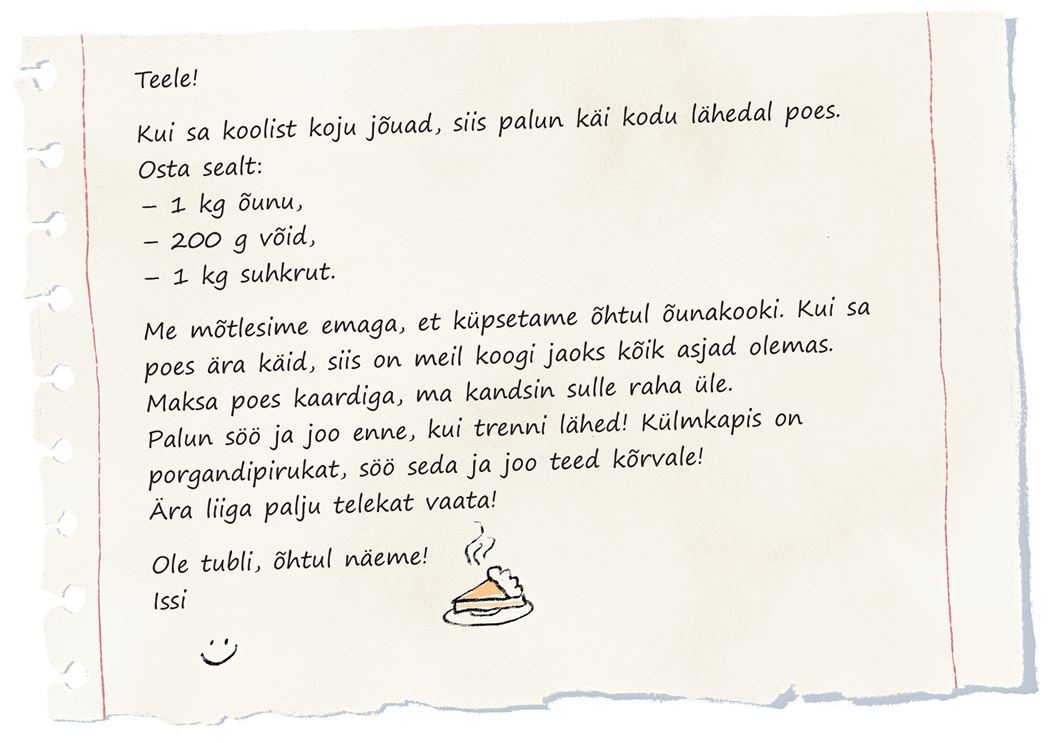 Teele!
Kui sa koolist koju jõuad, siis palun käi kodu lähedal poes.
Osta sealt:
– 1 kg õunu,
– 200 g võid,
– 1 kg suhkrut.
Me mõtlesime emaga, et küpsetame õhtul õunakooki. Kui sa
poes ära käid, siis on meil koogi jaoks kõik asjad olemas.
Maksa poes kaardiga, ma kandsin sulle raha üle.
Palun söö ja joo enne, kui trenni lähed! Külmkapis on
porgandipirukat, söö seda ja joo teed kõrvale!
Ära liiga palju telekat vaata!
Ole tubli, õhtul näeme!
Issi